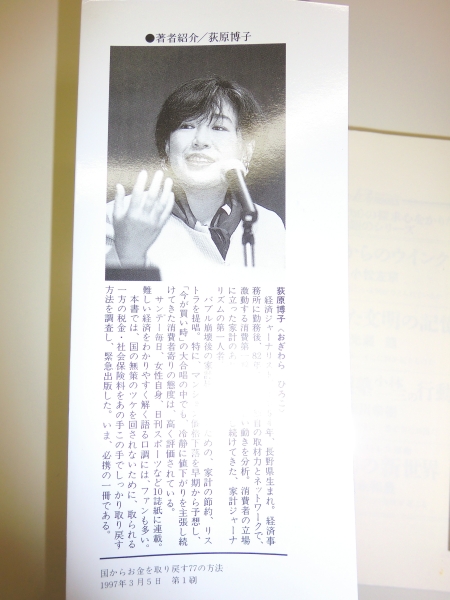 ●著者紹介／荻原博子
荻原博子（おぎわら ひろこ
経済ジャーナリスト 年、長野県生まれ。経済事
務所に勤務後、 年 自の取材力とネットワークで、
激動する消費第一 い動きを分析、消費者の立場
に立った家計のあ 続けてきた、家計ジャーナ
リズムの第一人者
バブル崩壊後の家 めの、家計の節約、リス
トラを提唱。特に、マンション価格下落を早期から予想し、
「今が買い時」の大合唱の中でも、冷静に値下がりを主張し続
けてきた消費者寄りの態度は、高く評価されている。
サンデー毎日、女性自身、日刊スポーツなど10誌紙に連載。
難しい経済をわかりやすく解く語る口調には、ファンも多い。
本書では、国の無策のツケを回されないために、取られる
一方の税金・社会保険料をあの手この手でしっかり取り戻す
方法を調査し、緊急出版した。いま、必携の一冊である。
国からお金を取り戻す77の方法
1997年3月5日 第1刷